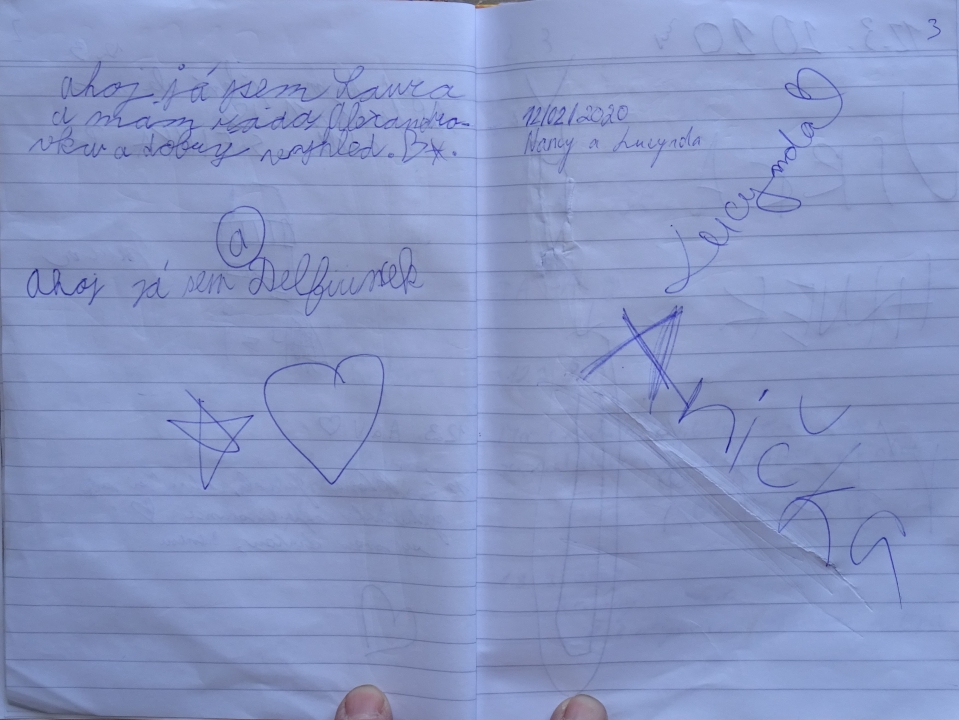 ahoj já jsem Laura
a mám ráda Alexandro-
vku a dobrý výhled.
a
ahoj já sem Delfínek
3
12/02/2020
Nancy a Lucynda
Lucynda